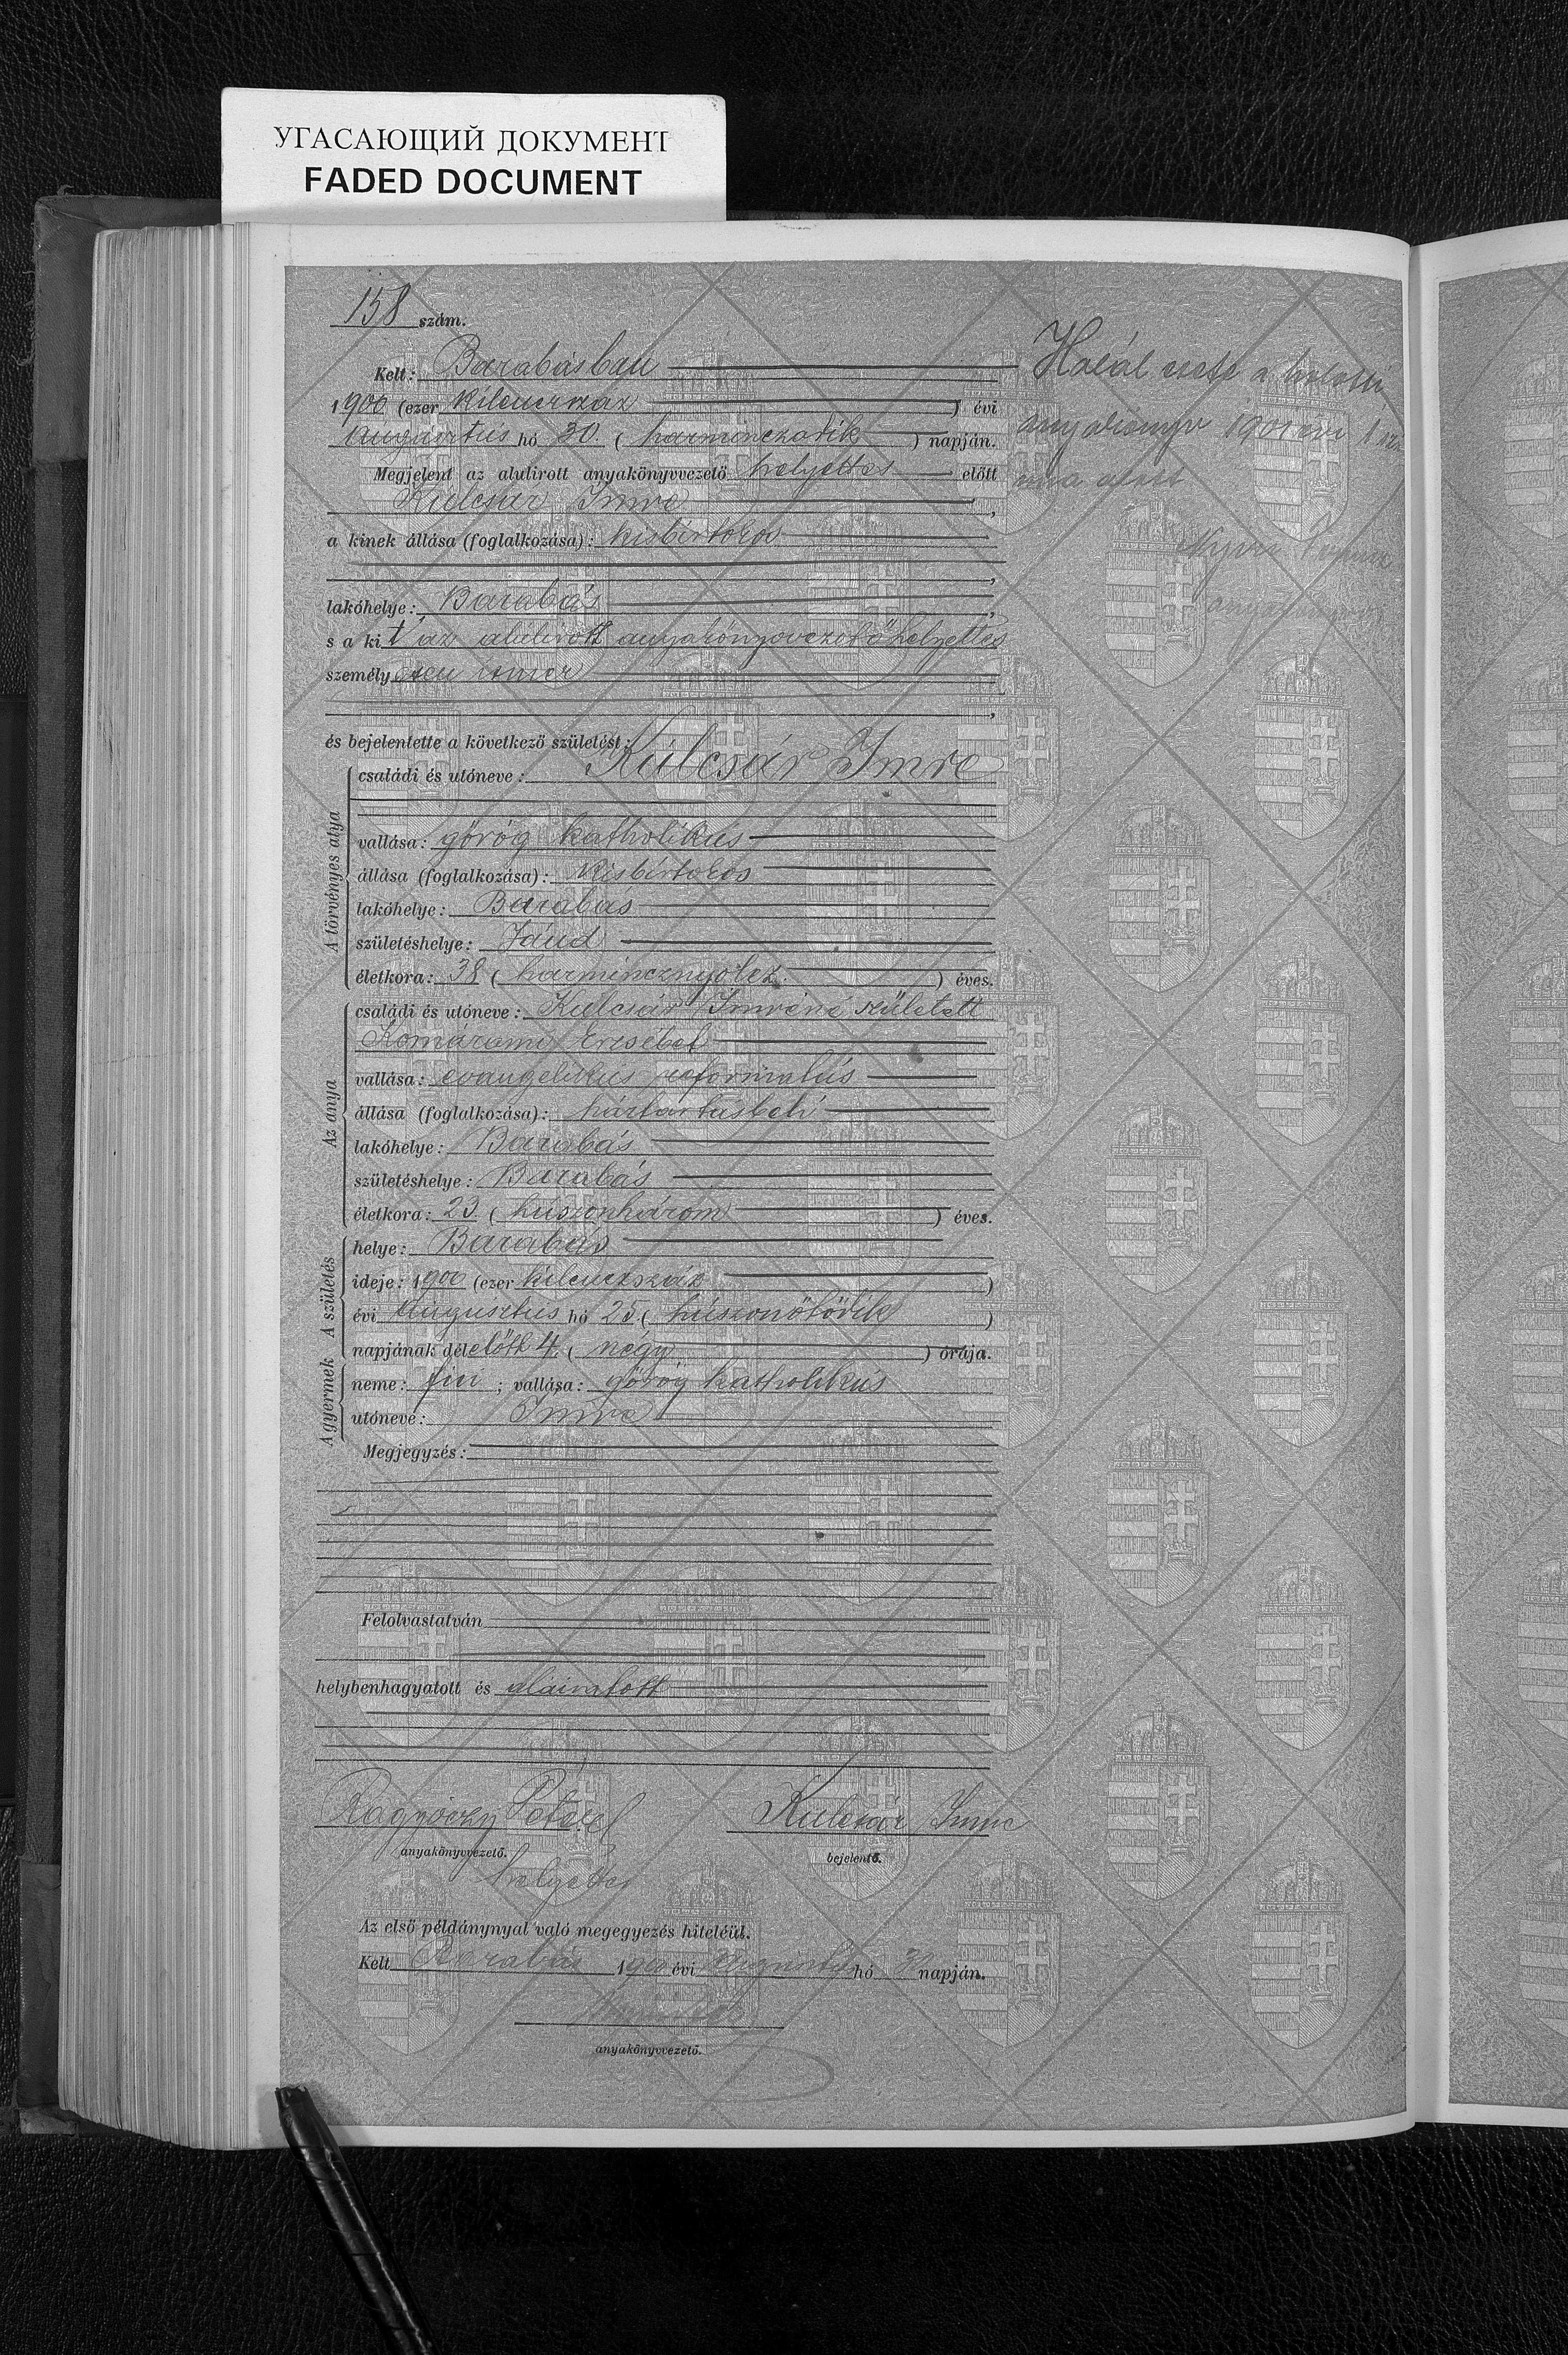 УГАСАЮЩИЙ ДОКУМЕНТ
FADED DOCUMENT
158 szám.
Kelt: Barabásban
1900 (ezer kilenczszáz) évi
augusztus hó 30. (harminczadik) napján.
Megjelent az alulirott anyakönyvvezető helyettes előtt
Kulcsár Imre,
a kinek állása (foglalkozása): kisbirtokos
,
lakóhelye: Barabás,
s a kit az alulirott anyakönyvvezető helyettes
személyesen ismer
,
és bejelentette a következő születést:
A törvényes atya
családi és utóneve: Kulcsár Imre
vallása: görög katholikus
állása (foglalkozása): kisbirtokos
lakóhelye: Barabás
születéshelye: Jánd
életkora: 38 (harmincznyolcz) éves.
Az anya
családi és utóneve: Kulcsár Imréné született
Komáromi Erzsébet
vallása: evangelikus reformatus
állása (foglalkozása): háztartásbeli
lakóhelye: Barabás
születéshelye: Barabás
életkora: 23. (huszonhárom) éves.
A születés
helye: Barabás
ideje: 1900 (ezer kilenczszáz)
évi augusztus hó 25. (huszonötödik)
napjának délelőtt 4. (négy) órája.
A gyermek
neme: fiu; vallása: görög katholikus
utóneve: Imre
Megjegyzés:
Felolvastatván
helybenhagyatott és aláiratott
Kulcsár Imre
anyakönyvvezető. bejelentő.
helyettes
Az első példánynyal való megegyezés hiteléül.
Kelt Barabás 1900 évi augusztus hó napján.
anyakönyvvezető.
Halál esete a halotti
anyakönyv 1901 évi 1
alatt